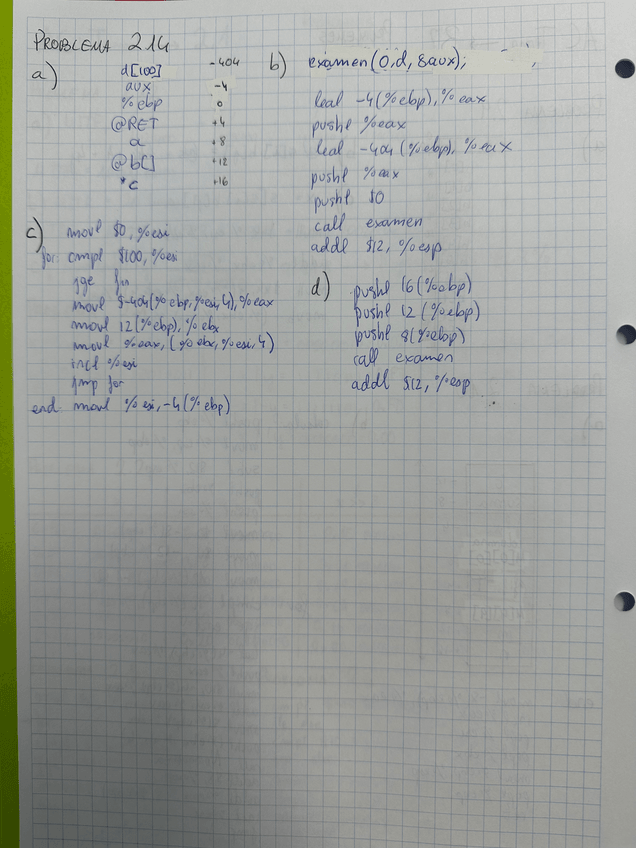 PROBLEMA 214
a)
d[100] -404
aux -4
%ebp 0
@RET +4
a +8
@b[] +12
*c +16
b) examen(0,d,&aux);
leal -4(%ebp),%eax
pushl %eax
leal -404(%ebp),%eax
pushl %eax
pushl $0
call examen
addl $12,%esp
c) movl $0,%esi
for: cmpl $100,%esi
jge fin
movl $-404(%ebp,%esi,4),%eax
movl 12(%ebp),%ebx
movl %eax,(%ebx,%esi,4)
incl %esi
jmp for
end: movl %esi,-4(%ebp)
d) pushl 16(%ebp)
pushl 12(%ebp)
pushl 8(%ebp)
call examen
addl $12,%esp